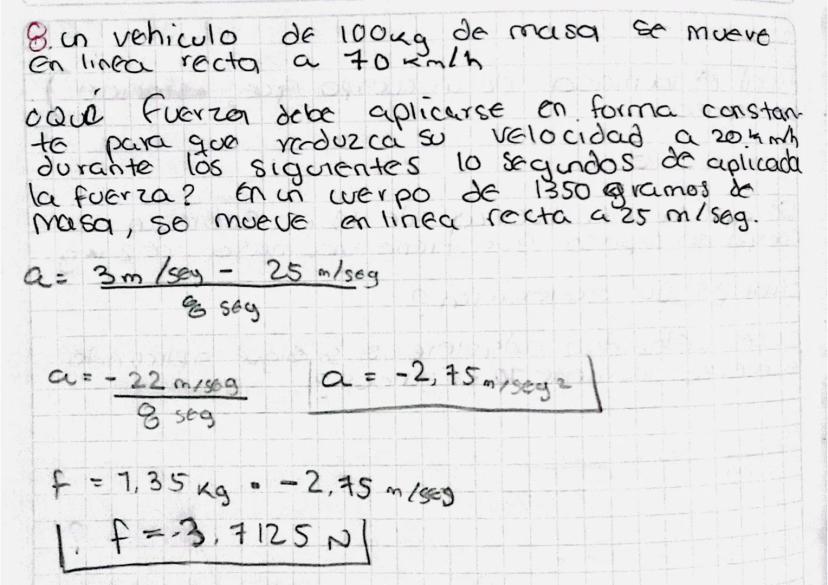 8. un vehiculo de 100kg de masa se mueve
en linea recta a 70 km/h
¿Qué fuerza debe aplicarse en forma constan-
te para que reduzca su velocidad a 20 km/h
durante los siguientes 10 segundos de aplicada
la fuerza? En un cuerpo de 1350 gramos de
masa, se mueve en linea recta a 25 m/seg.
a = 3 m/seg - 25 m/seg
8 seg
a = - 22 m/seg a = -2,75 m/seg 2
8 seg
f = 1,35 kg • -2,75 m/seg
f = -3,7125 N